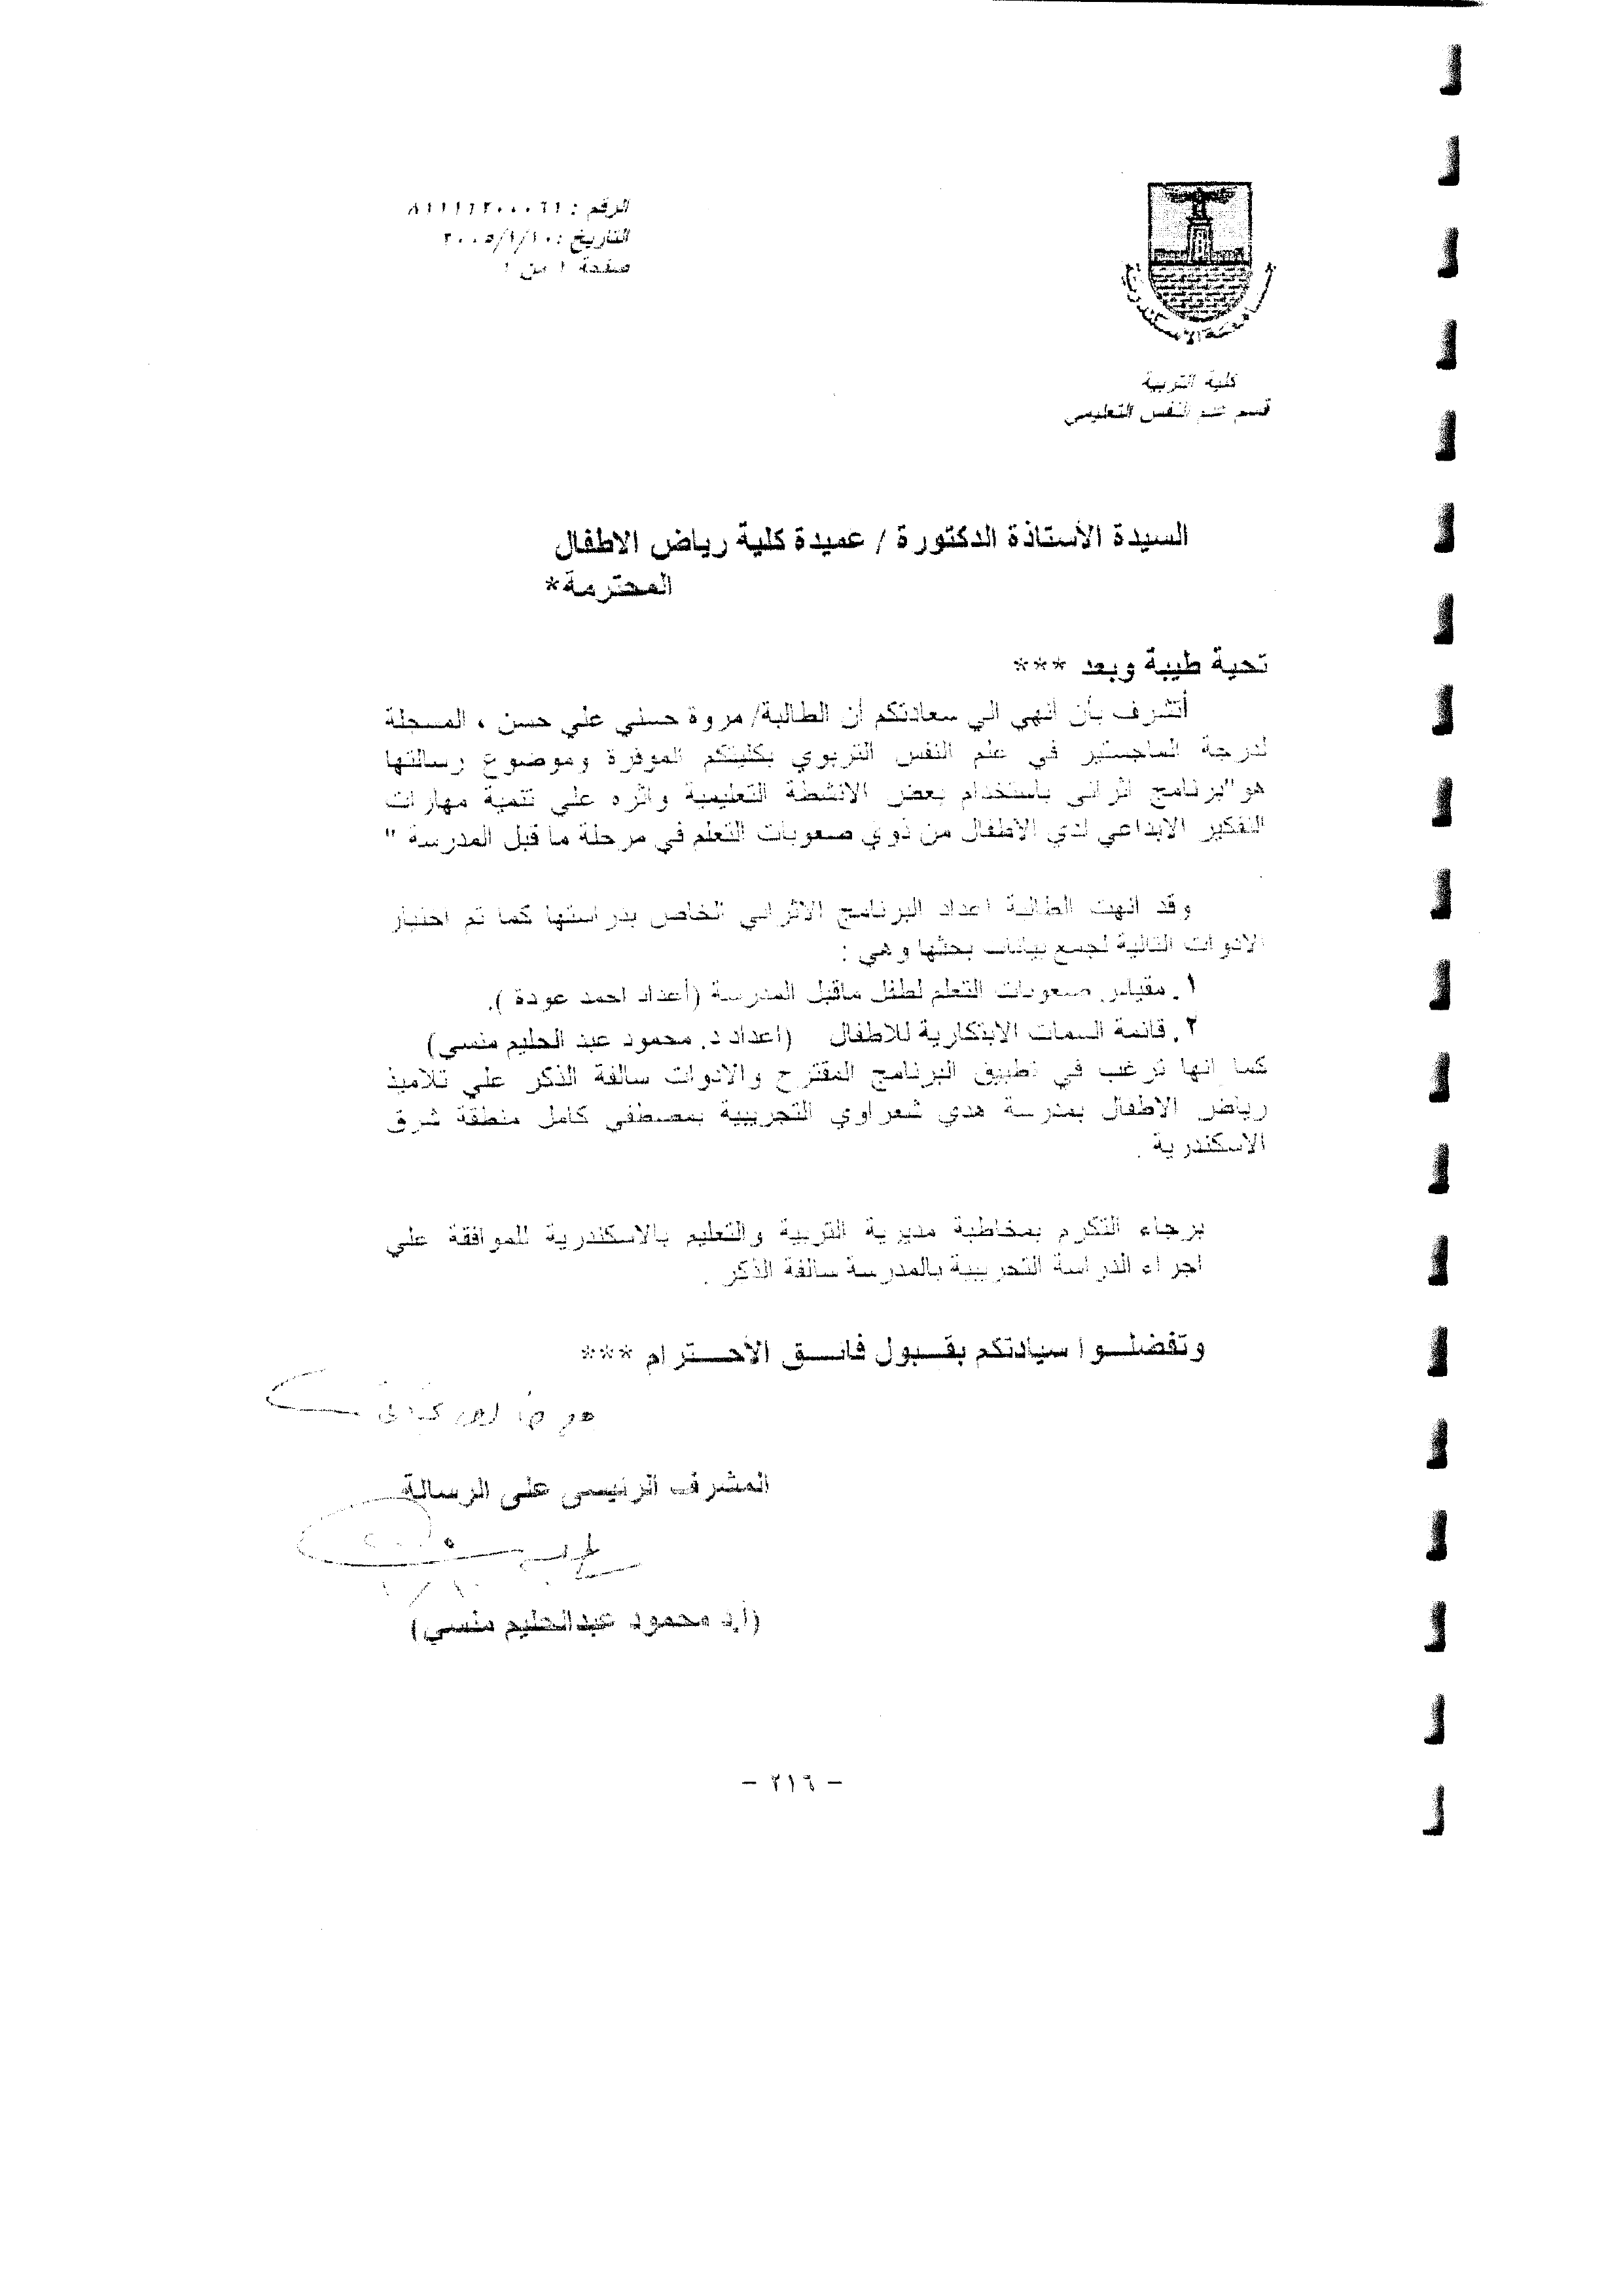 التاريخ : ٢٠٠٥/١/١٠
صفحة ١ من ١
جامعة الاسكندرية
كلية التربية
قسم علم النفس التعليمي
السيدة الأستاذة الدكتورة / عميدة كلية رياض الاطفال
المحترمة*
تحية طيبة وبعد ***
أتشرف بأن أنهي الي سعادتكم أن الطالبة/ مروة حسني علي حسن ، المسجلة
لدرجة الماجستير في علم النفس التربوي بكليتكم الموقرة وموضوع رسالتها
هو"برنامج اثرائي باستخدام بعض الانشطة التعليمية واثره علي تنمية مهارات
التفكير الابداعي لدي الاطفال من ذوي صعوبات التعلم في مرحلة ما قبل المدرسة "
وقد انهت الطالبة اعداد البرنامج الاثرائي الخاص بدراستها كما تم اختيار
الادوات التالية لجمع بيانات بحثها وهي :
١. مقياس صعوبات التعلم لطفل ماقبل المدرسة (أعداد احمد عودة ).
٢. قائمة السمات الابتكارية للاطفال (اعداد د. محمود عبد الحليم منسي)
كما انها ترغب في تطبيق البرنامج المقترح والادوات سالفة الذكر علي تلاميذ
رياض الاطفال بمدرسة هدي شعراوي التجريبية بمصطفي كامل منطقة شرق
الاسكندرية .
برجاء التكرم بمخاطبة مديرية التربية والتعليم بالاسكندرية للموافقة علي
اجراء الدراسة التجريبية بالمدرسة سالفة الذكر .
وتفضلـــوا سيادتكم بقـــبول فائـــق الأحـــترام ***
المشرف الرئيسي على الرسالة
(أ.د محمود عبدالحليم منسي)
- ٢١٦ -